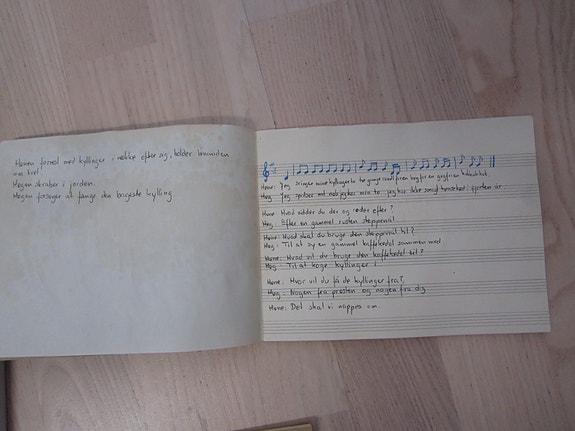 Hønen forrest med kyllinger i række efter sig, holder hinanden
om livet
Høgen skraber i jorden.
Høgen forsøger at fange den bageste kylling
Høne: Jeg svinger mine kyllinger to tre gange rundt
Høg: Jeg ikke smagt hønsekød i fjorten år
Høne: Hvad sidder du der og roder efter?
Høg: Efter en gammel rusten stoppenål
Høne: Hvad skal du bruge den stoppenål til?
Høg: Til at sy en gammel kaffekedel sammen med
Høne: Hvad vil du bruge den kaffekedel til?
Høg: Til at koge kyllinger i
Høne: Hvor vil du få de kyllinger fra?
Høg: Nogen fra præsten og nogen fra dig
Høne: Det skal vi nappes om.